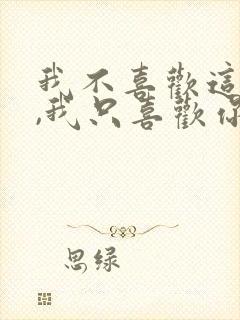 我不喜歡這
,我只喜歡你
思绿